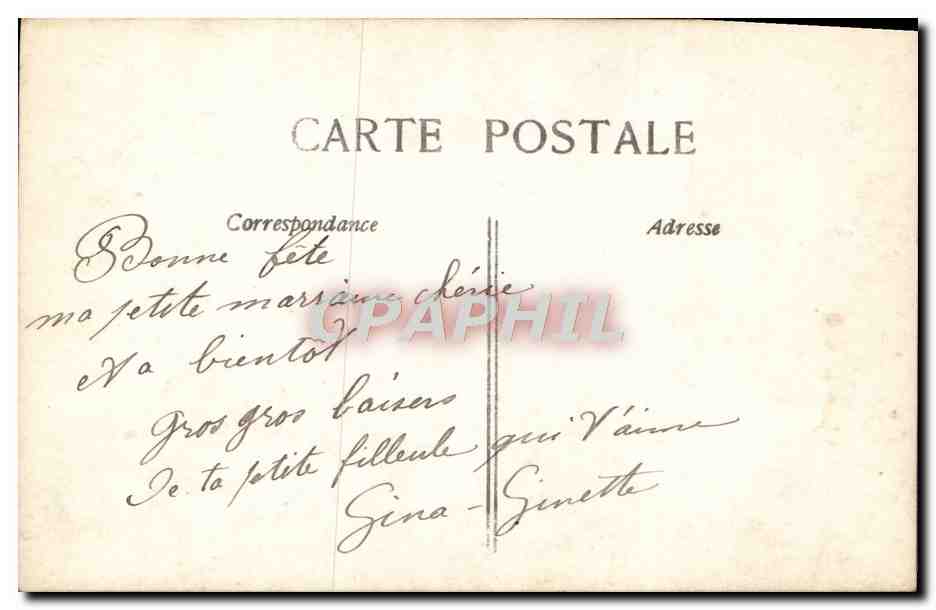 CARTE POSTALE
Correspondance
Adresse
Bonne fête
ma petite marraine chérie
CPAPHIL
et a bientôt
gros gros baisers
De ta petite filleule qui t'aime
Gina - Ginette